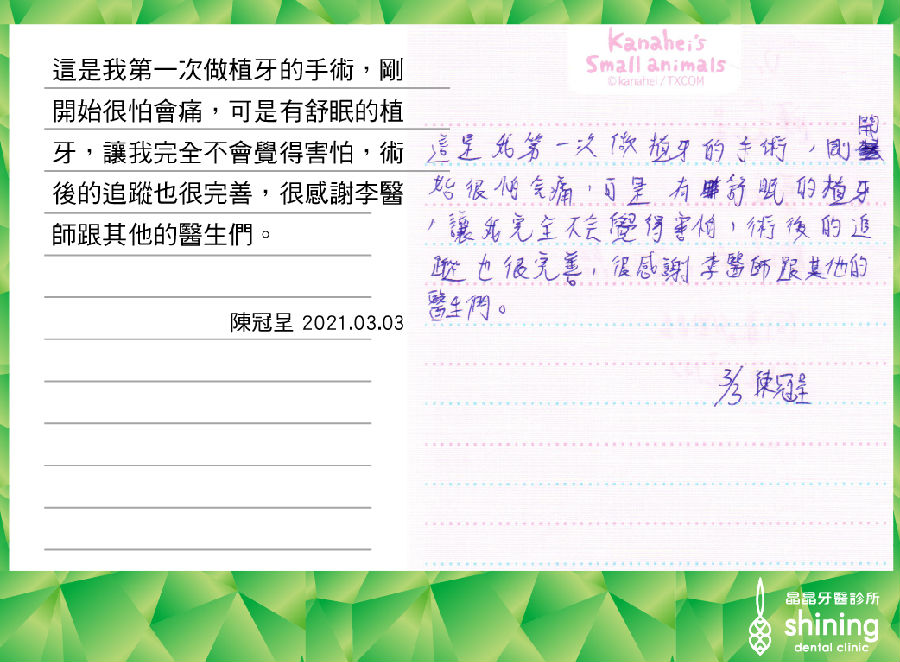 這是我第一次做植牙的手術，剛
開始很怕會痛，可是有舒眠的植
牙，讓我完全不會覺得害怕，術
後的追蹤也很完善，很感謝李醫
師跟其他的醫生們。
陳冠呈 2021.03.03
Kanahei's
Small animals
©kanahei / TXCOM
這是我第一次做植牙的手術，剛開
始很怕會痛，可是有舒眠的植牙
，讓我完全不會覺得害怕，術後的追
蹤也很完善，很感謝李醫師跟其他的
醫生們。
3/3 陳冠呈
晶晶牙醫診所
shining
dental clinic